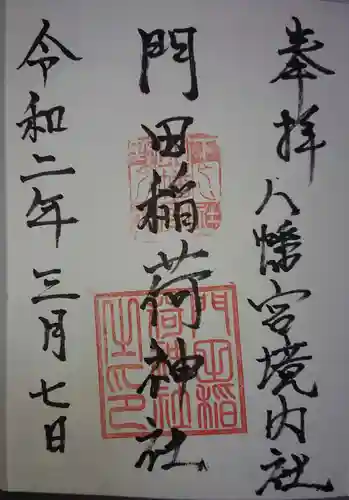 奉拝 八幡宮境内社
門田稲荷神社
令和二年 三月 七日
門田稲
荷神社
之印